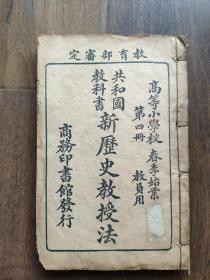 教育部審定
高等小學校 春季始業
第四冊 教員用
共和國
教科書
新歷史教授法
商務印書館發行